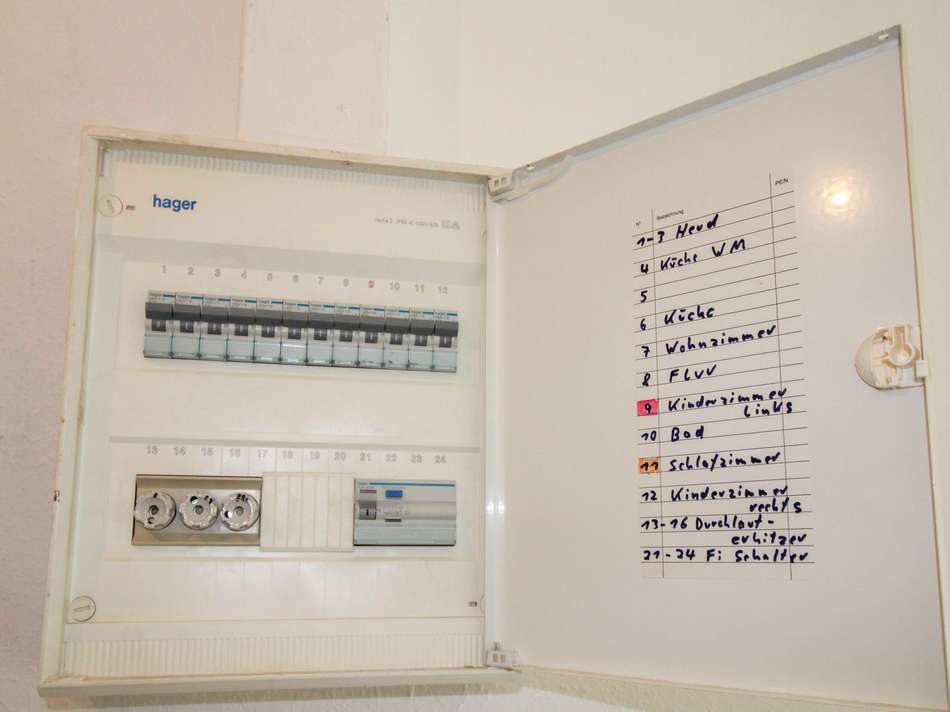 hager
1 2 3 4 5 6 7 8 9 10 11 12
13 14 15 16 17 18 19 20 21 22 23 24
N° Bezeichnung PE/N
1-3 Herd
4 Küche WM
5
6 Küche
7 Wohnzimmer
8 Flur
9 Kinderzimmer
links
10 Bad
11 Schlafzimmer
12 Kinderzimmer
rechts
13-16 Durchlauf-
erhitzer
21-24 Fi Schalter